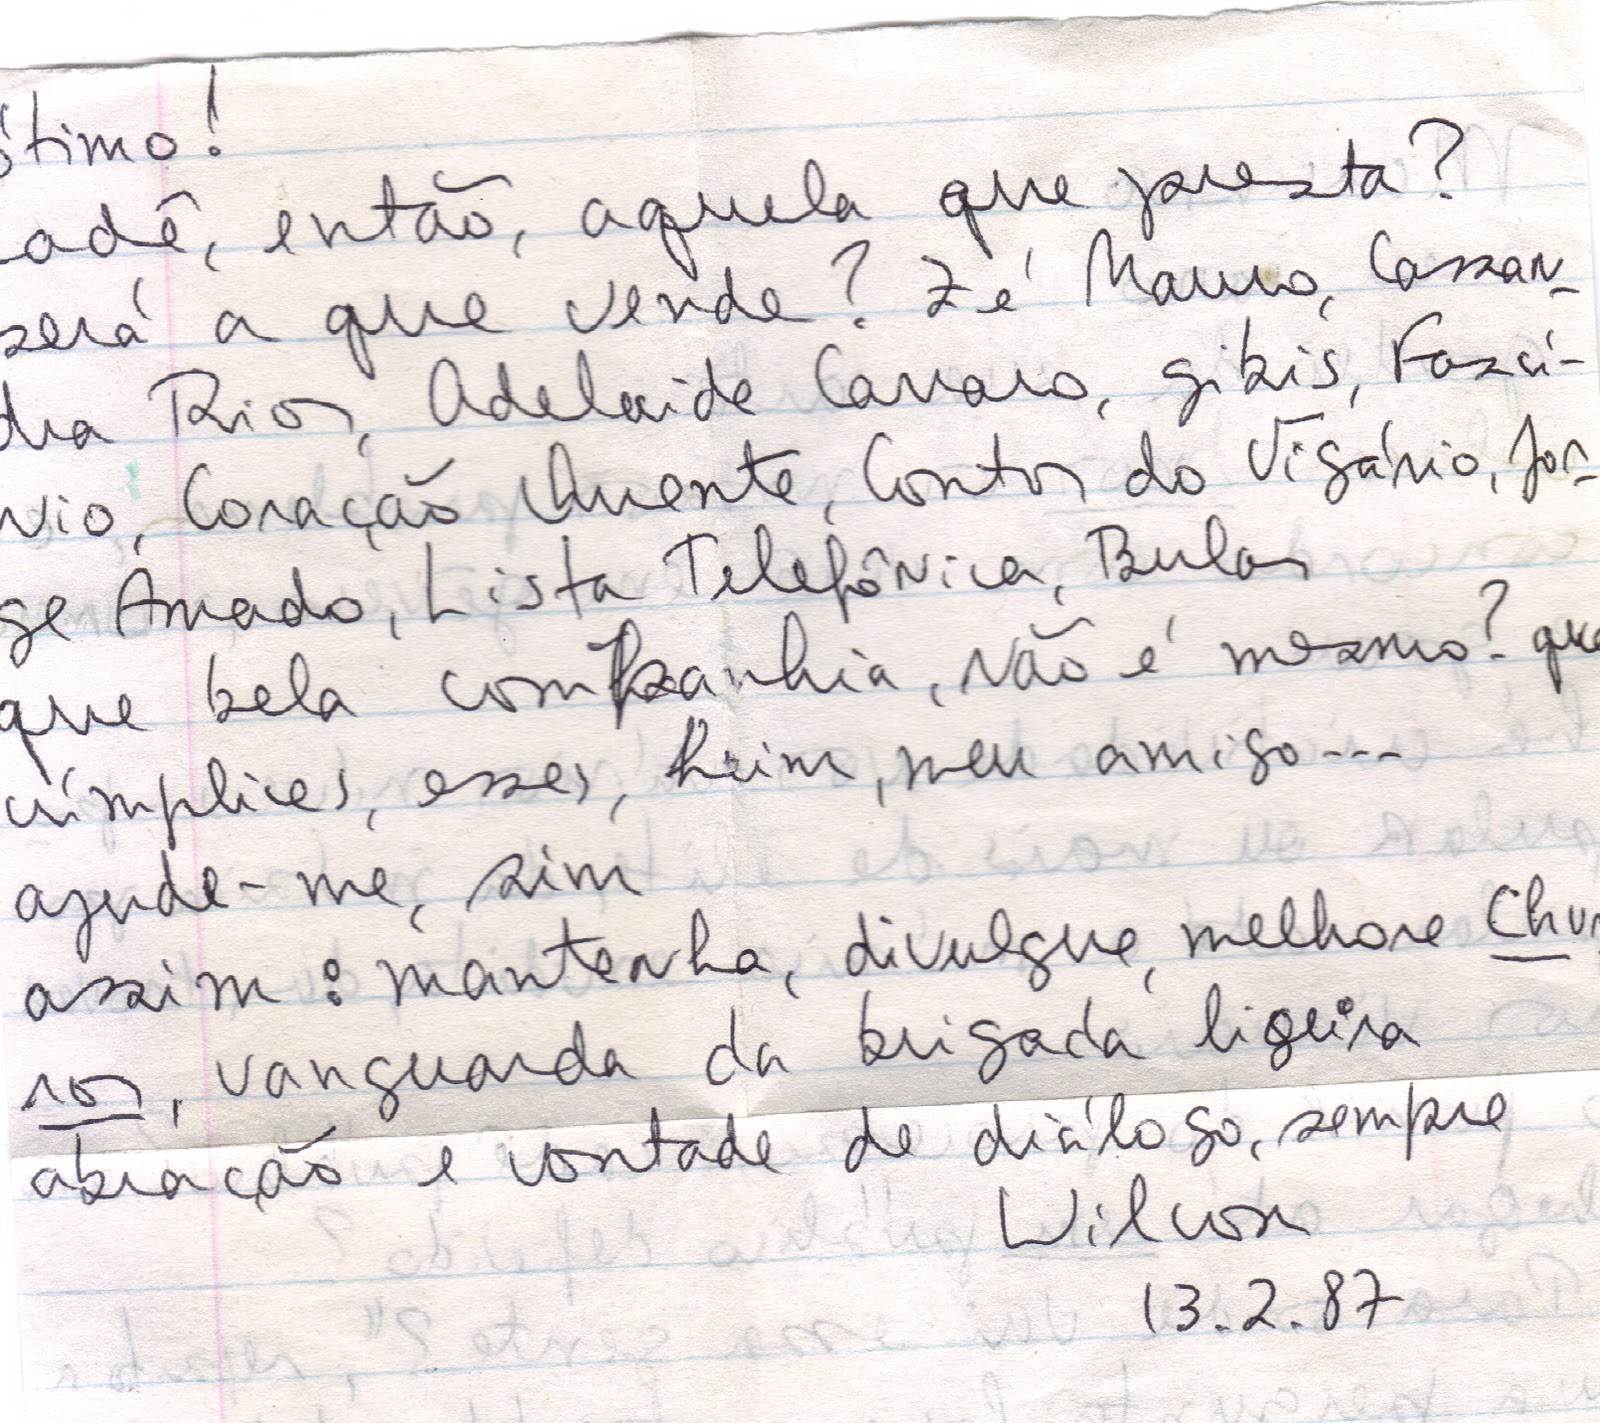 ótimo!
cadê, então, aquela que presta?
será a que vende? Zé Mauro, Cassan-
dra Rios, Adelaide Carraro, gibis, Fascí-
nio, Coração Quente, Contos do Vigário, Jor-
ge Amado, Lista Telefônica, Bulas
que bela companhia, não é mesmo? que
cúmplices, esses, heim, meu amigo---
ajude-me, sim
assim: mantenha, divulgue, melhore Chur
ros, vanguarda da brigada ligeira
abração e vontade de diálogo, sempre
Wilcon
13.2.87